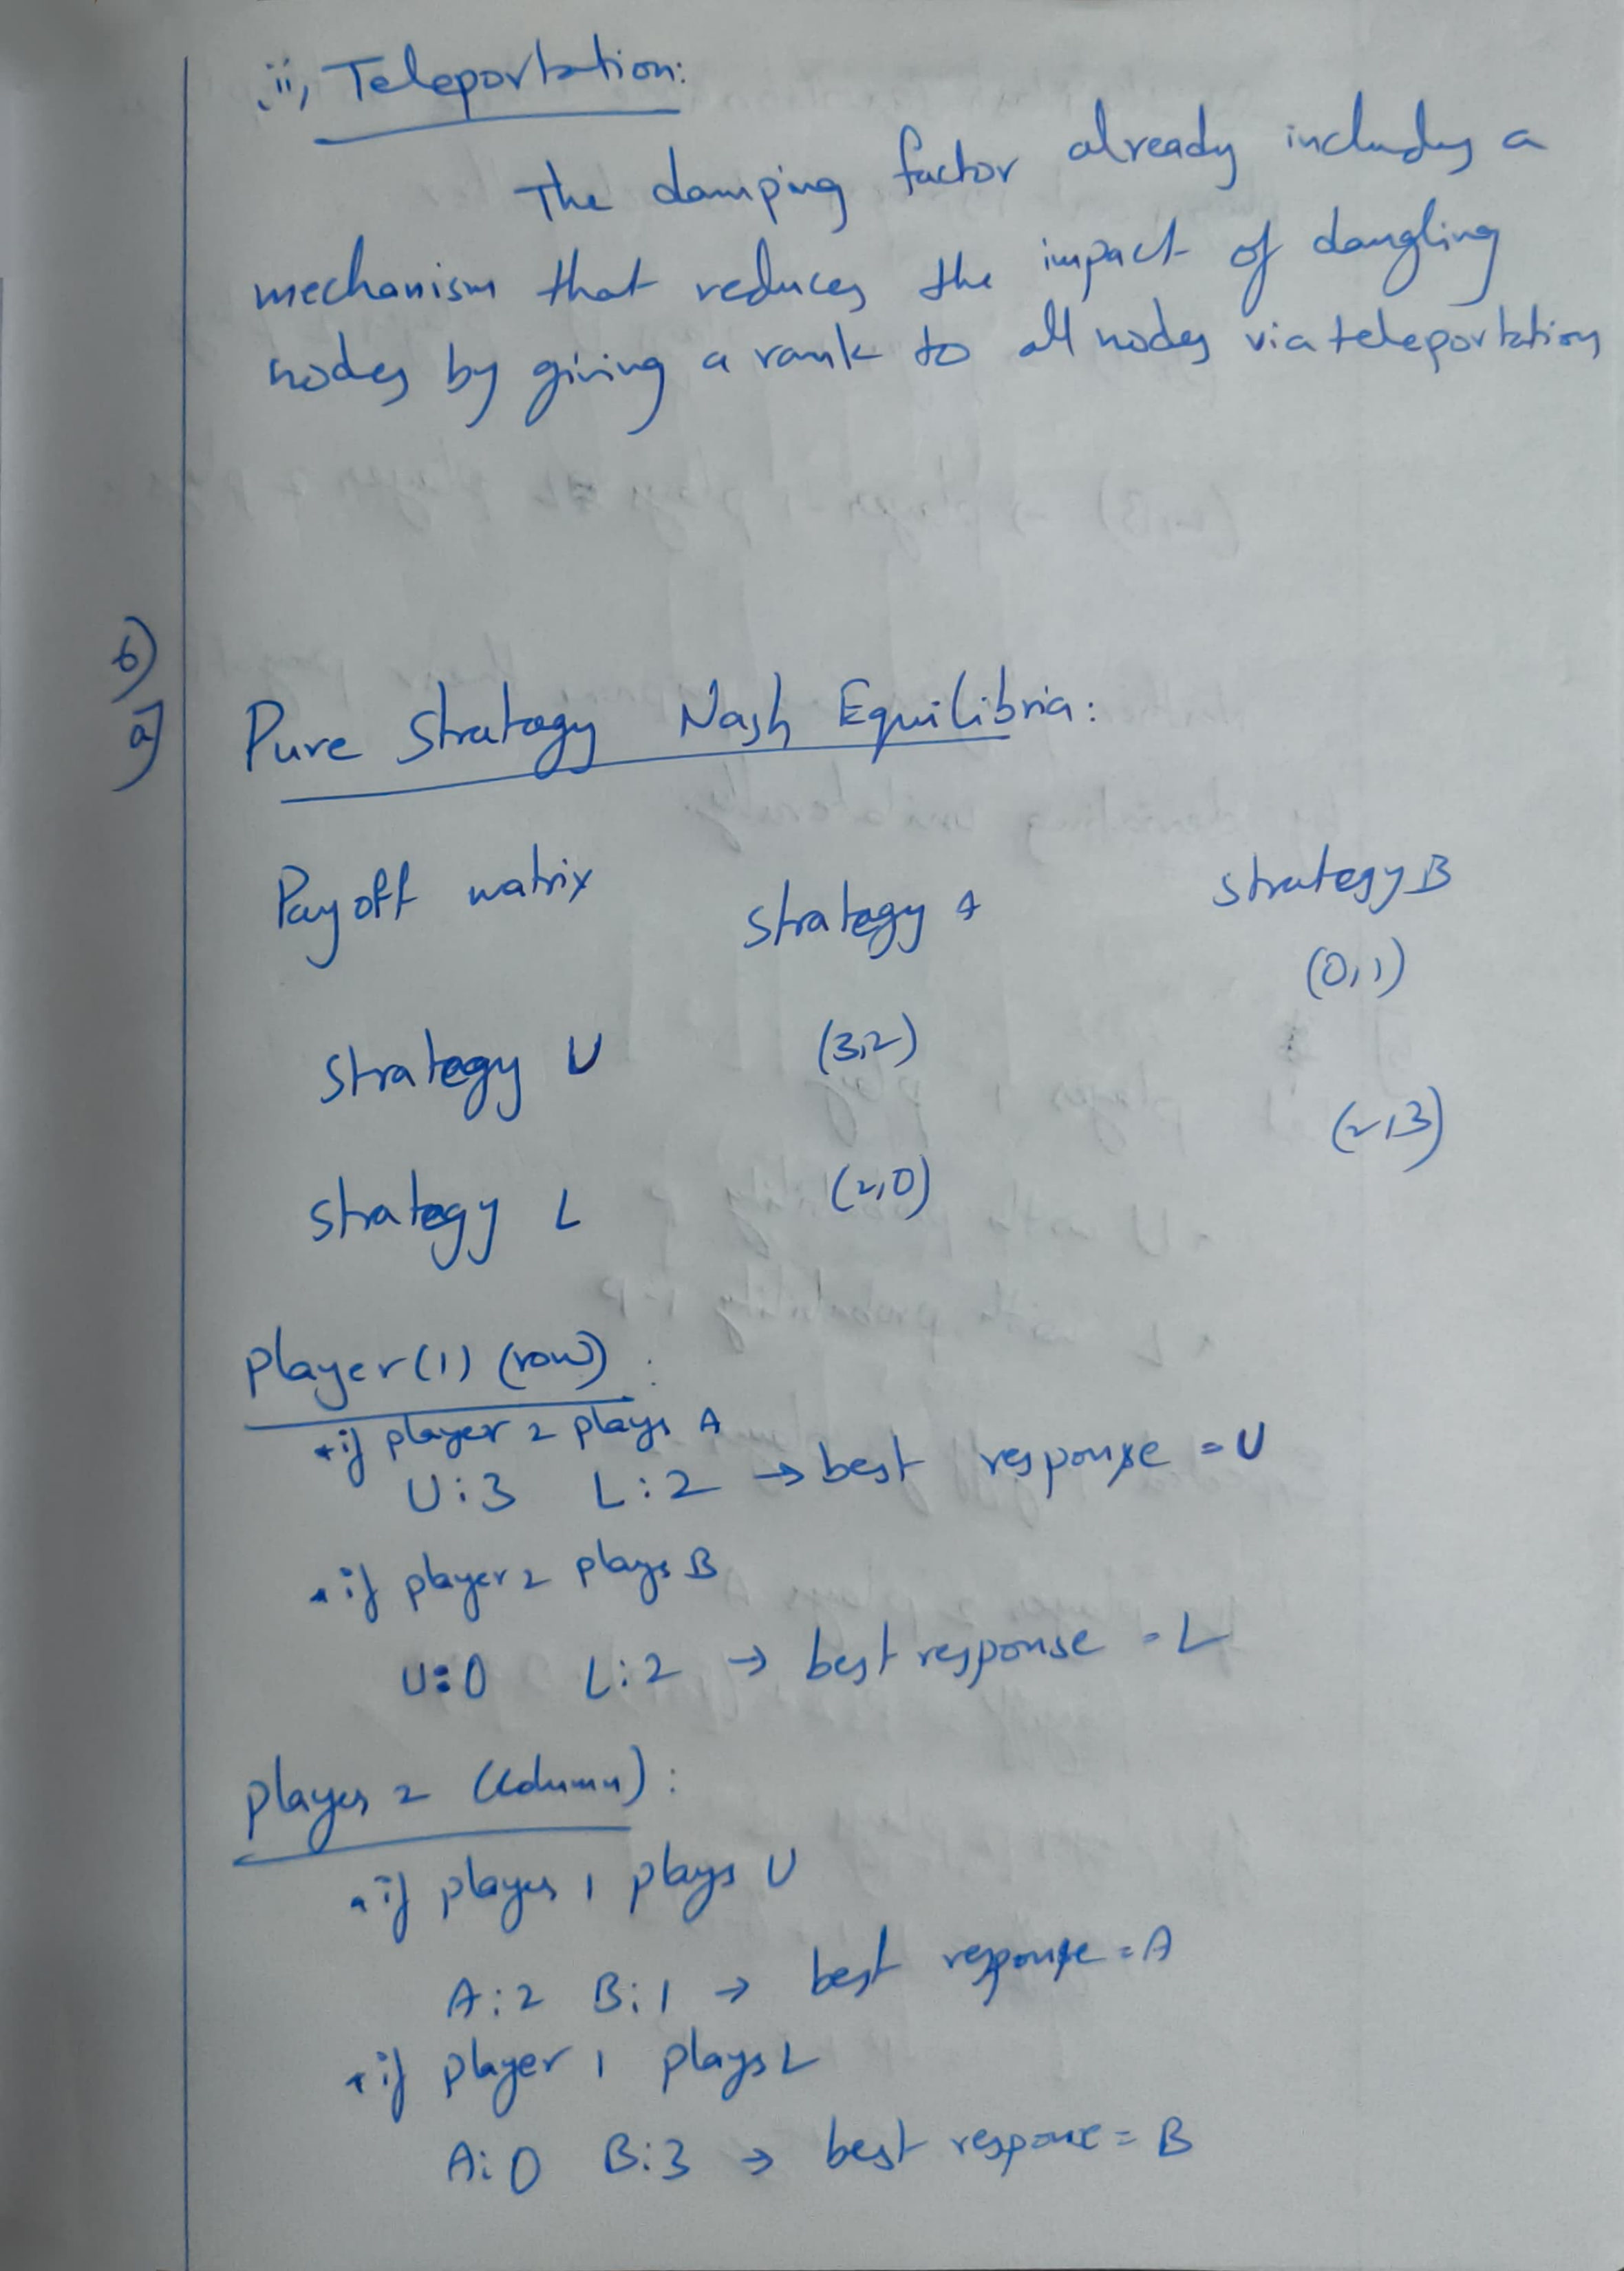 ii, Teleportation:
The damping factor already includes a
mechanism that reduces the impact of dangling
nodes by giving a rank to all nodes via teleportation
6)
a] Pure Strategy Nash Equilibria:
Payoff matrix strategy A strategy B
strategy U (3,2) (0,1)
strategy L (2,0) (2,3)
player(1) (row) :
• if player 2 plays A
U:3 L:2 → best response = U
• if player 2 plays B
U:0 L:2 → best response = L
player 2 (column) :
• if player 1 plays U
A:2 B:1 → best response = A
• if player 1 plays L
A:0 B:3 → best response = B